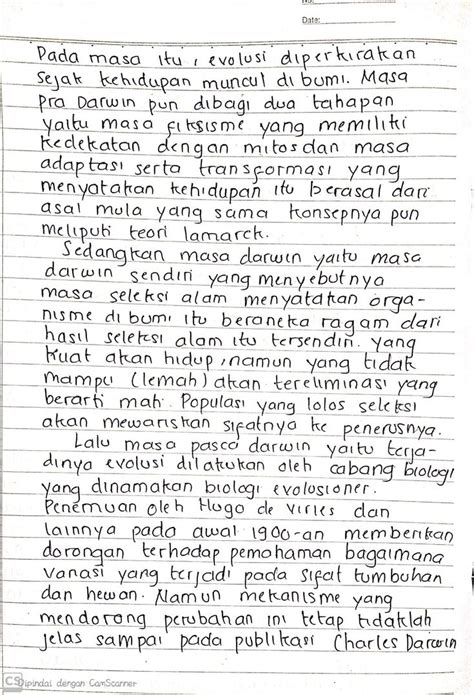 No:
Date:
Pada masa itu, evolusi diperkirakan
sejak kehidupan muncul di bumi. Masa
pra Darwin pun dibagi dua tahapan
yaitu masa fiksisme yang memiliki
kedekatan dengan mitos dan masa
adaptasi serta transformasi yang
menyatakan kehidupan itu berasal dari
asal mula yang sama konsepnya pun
meliputi teori lamarck.
Sedangkan masa darwin yaitu masa
darwin sendiri yang menyebutnya
masa seleksi alam menyatakan orga-
nisme di bumi itu beraneka ragam dari
hasil seleksi alam itu tersendiri. yang
kuat akan hidup, namun yang tidak
mampu (lemah) akan tereluminasi yang
berarti mati. Populasi yang lolos seleksi
akan mewariskan sifatnya ke penerusnya.
Lalu masa pasca darwin yaitu terja-
dinya evolusi dilakukan oleh cabang biologi
yang dinamakan biologi evolusioner.
Penemuan oleh Hugo de Vries dan
lainnya pada awal 1900-an memberikan
dorongan terhadap pemahaman bagaimana
variasi yang terjadi pada sifat tumbuhan
dan hewan. Namun mekanisme yang
mendorong perubahan ini tetap tidaklah
jelas sampai pada publikasi Charles Darwin
CS Dipindai dengan CamScanner